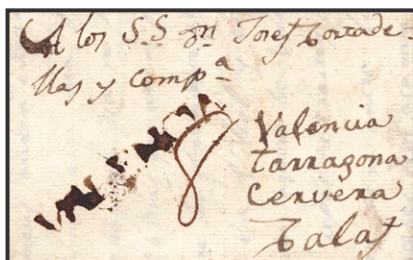 A los S.S. Dn Josef Tortade-
llas y Compª
8
Valencia
Tarragona
Cervera
Talaf